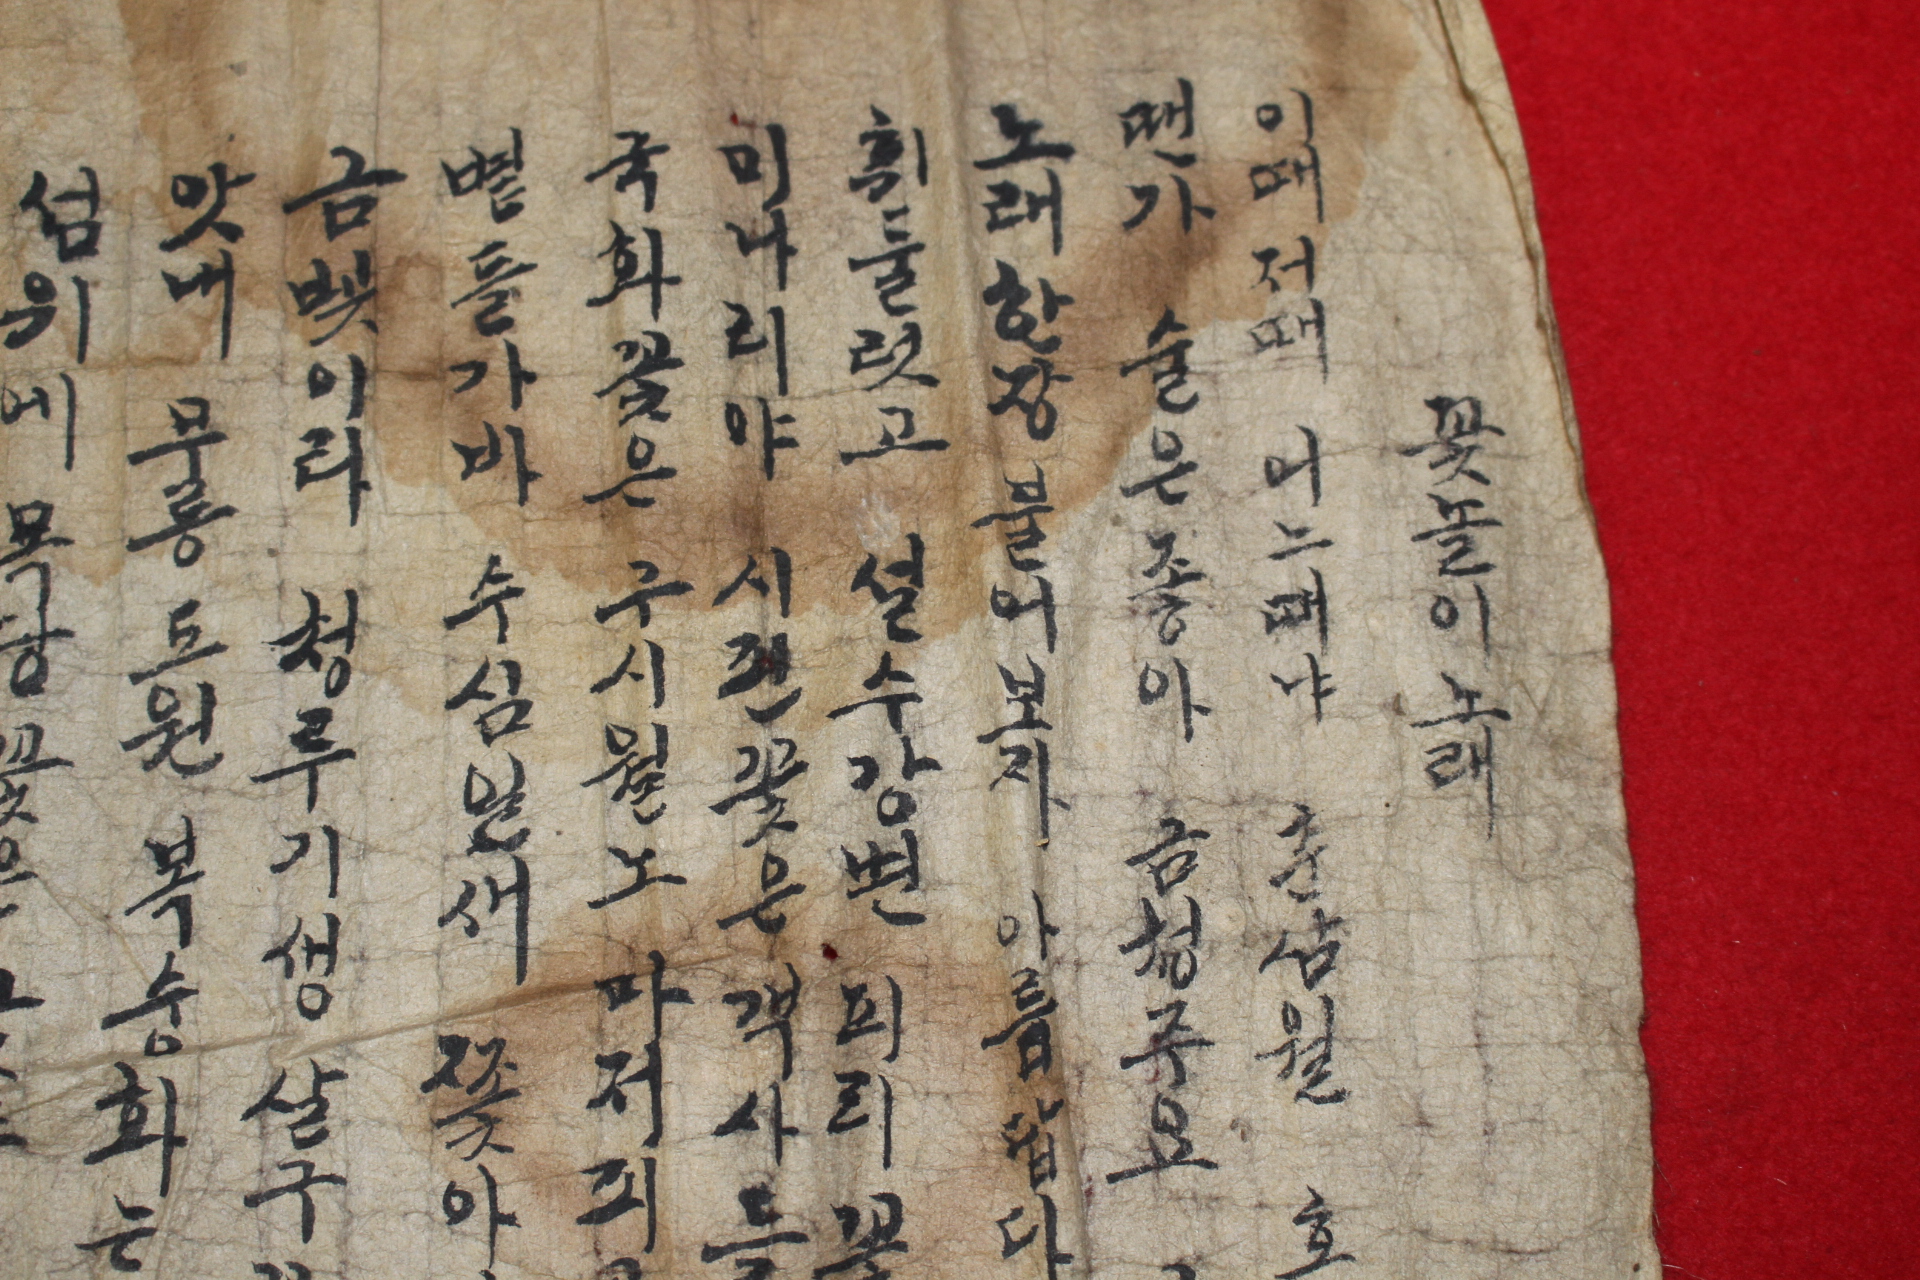 꽃놀이 노래
이때 저때 어느때냐 춘삼월 호
땐가 술은 좋아 금청주요
노래 한장 불어보자 아름답다
휘둘럿고 설수강변 피리 꽃
미나리야 시젼꽃은 객사들
국화꽃은 구시월노 마저피
볕들가바 수심일새 꽃아
금빛이라 청루기생 살구
앗내 무릉도원 복숭화는
섬위에